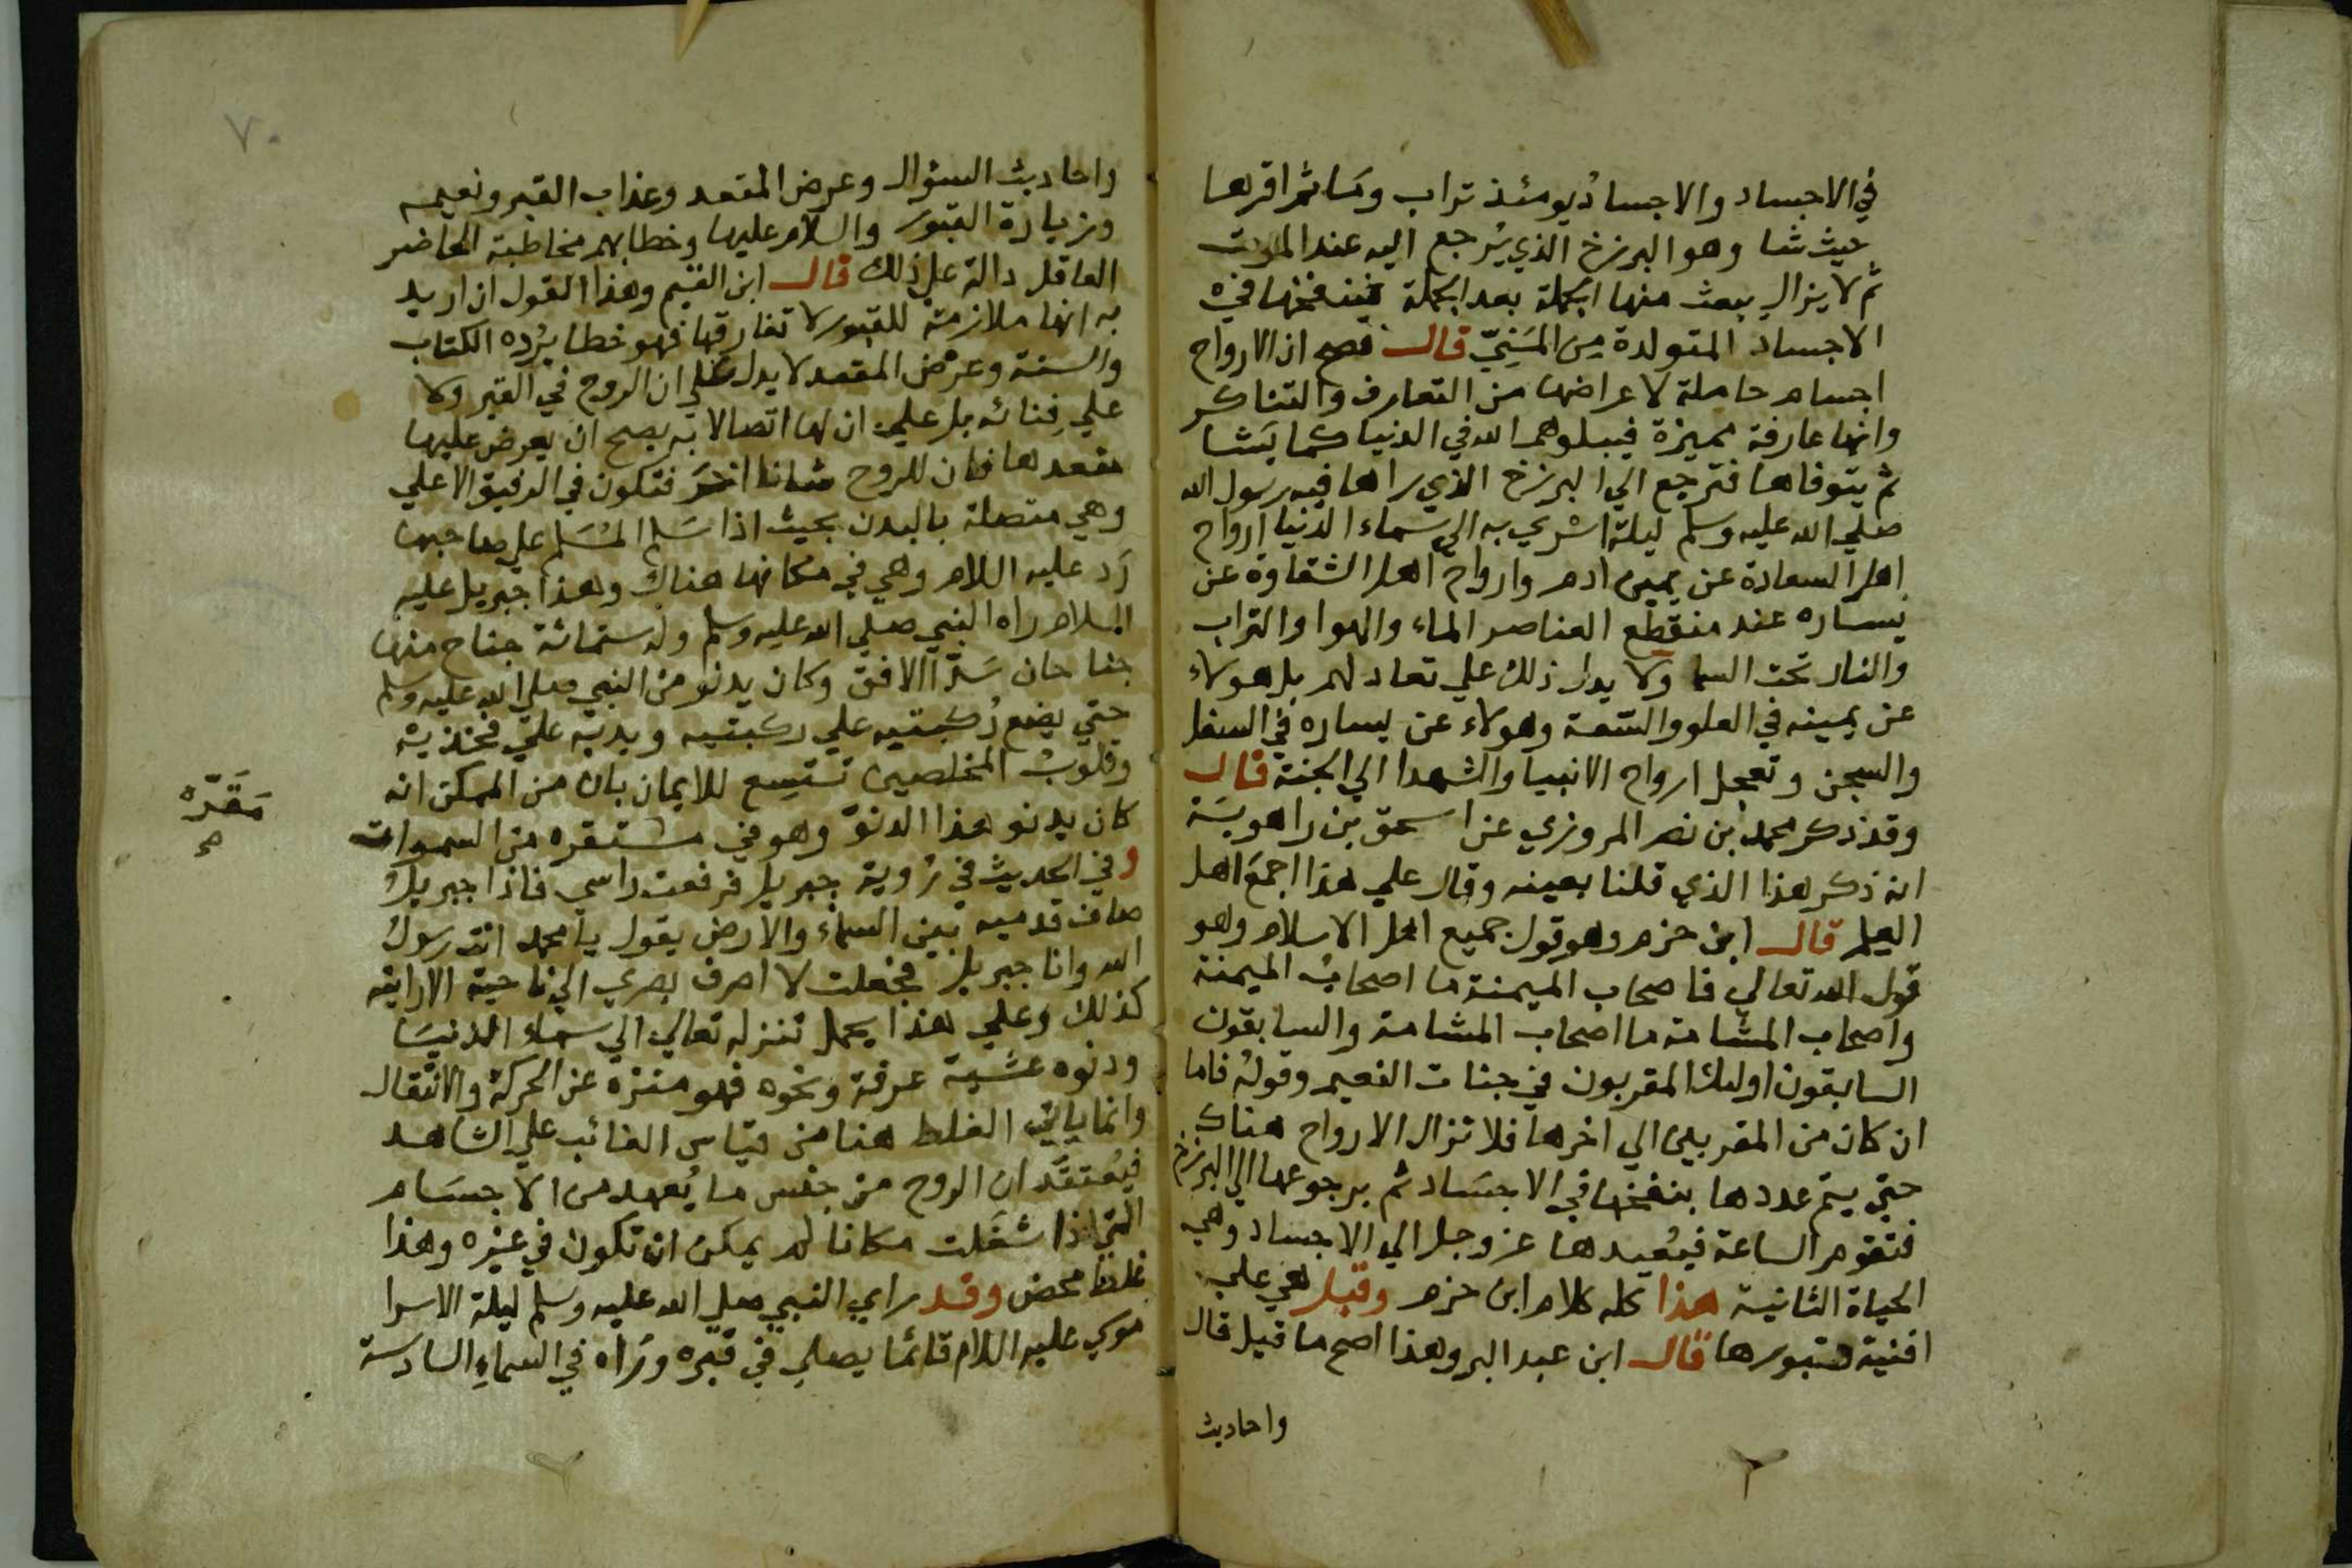 في الاجساد والاجساد يومئذ تراب وما ثم اقرها
حيث شا وهو البرزخ الذي يُرجع اليه عند الموت
ثم لا يزال يبعث منها الجملة بعد الجملة فينفخها في
الاجساد المتولدة من المَنِيّ قال فصح ان الارواح
اجسام حاملة لاعراضها من التعارف والتناكر
وانها عارفة مميزة فيبلوهم الله في الدنيا كما يَشا
ثم يتوفاها فترجع الي البرزخ الذي راها فيه رسول الله
صلي الله عليه وسلم ليلة اسري به الي سماء الدنيا ارواح
اهل السعادة عن يمين ادم وارواح اهل الشقاوة عن
يساره عند منقطع العناصر الماء والهوا والتراب
والنار تحت السما ولا يدل ذلك علي تعادلهم بل هولاء
عن يمينه في العلو والسَّعة وهولاء عن يساره في السفل
والسجن وتعجل ارواح الانبيا والشهدا الي الجنة قال
وقد ذكر محمد بن نصر المروزي عن اسحق بن راهويَة
انه ذكر هذا الذي قلنا بعينه وقال علي هذا اجمعَ اهل
العلم قال ابن حزم وهو قول جميع اهل الاسلام وهو
قول الله تعالي فاصحاب الميمنة ما اصحابُ الميمنة
واصحاب المشامة ما اصحاب المشامة والسابقون
السابقون اوليك المقربون في جنات النعيم وقولهُ فاما
ان كان من المقربين الي اخرها فلا تزال الارواح هناك
حتي يتم عددها بنفخها في الاجسَاد ثم برجوعها الي البرزخ
فتقوم الساعة فيُعيدها عز وجل الي الاجساد وهي
الحياة الثانية هذا كله كلام ابن حزم وقيل هي علي
افنية قبورها قال ابن عبد البر وهذا اصح ما قيل قال
واحاديث
٧٠
واحاديث السؤال وعرض المقعد وعذاب القبر ونعيمه
وزيارة القبور والسلام عليها وخطابهم مخاطبة الحاضر
العاقل دالة علي ذلك قال ابن القيم وهذا القول ان اريد
به انها ملازمة للقبور لا تفارقها فهو خطا يَرُده الكتاب
والسنة وعرْض المقعد لا يدل علي ان الروح في القبر ولا
علي فِنائه بل علي ان لها اتصالا به يصح ان يعرض عليها
مقعدها فان للروح شانا اخرَ فتكون في الرفيق الاعلي
وهي متصلة بالبدن بحيث اذا سَلم المُسَلم علي صاحبها
رَد عليه السلام وهي في مكانها هناك وهذا جبريل عليه
السلام راه النبي صلي الله عليه وسلم وله ستمائة جناح منها
جناحان سَدّا الافق وكان يدنو من النبي صلي الله عليه وسلم
حتي يضع رُكبتيه علي ركبتيه ويديه علي فخذيه
وقلوبُ المخلصين تتسع للايمان بان من الممكن انه
كان يدنو هذا الدنوّ وهو في مستقره من السموات
مَقَرّه
وفي الحديث في رُوية جبريل فرفعت راسي فاذا جبريلُ
صاف قدميه بين السماء والارض يقول يا محمد انت رسولُ
الله وانا جبريل فجعلت لا اصرف بصري الي ناحية الا رايته
كذلك وعلي هذا يحمل تنزله تعالي الي سماء الدنيَا
ودنوه عشيةَ عرفة ونحوه فهو منزه عن الحركة والانتقال
وانما ياتي الغلط هنا من قياس الغائب علي الشاهد
فيُعتقَد ان الروح من جنس ما يُعهد من الاجسَام
التي اذا شغَلت مكانا لم يمكن ان تكون في غيره وهذا
غلط محض وقد راي النبي صلي الله عليه وسلم ليلة الاسرا
موسي عليه السلام قائما يصلي في قبره ورَاه في السماءِ السادسة